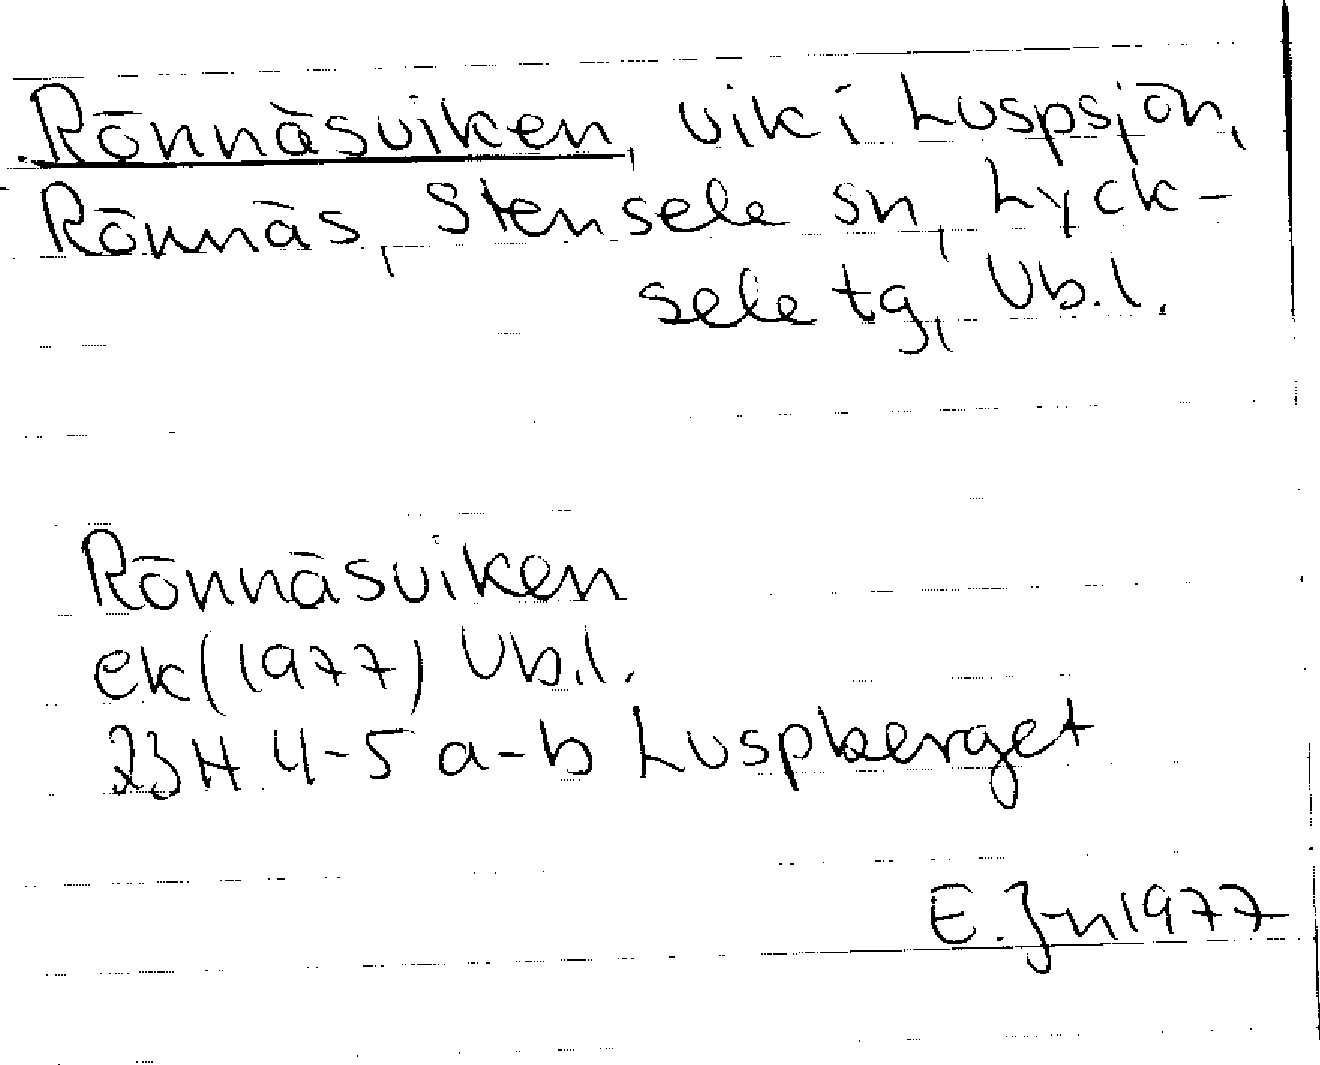 Rönnäsviken, vik i Luspsjön,
Rönnäs, Stensele sn, Lyck-
sele tg, Vb.l.
Rönnäsviken
ek (1977) Vb.l.
23H 4-5 a-b Luspberget
E. J-n 1977